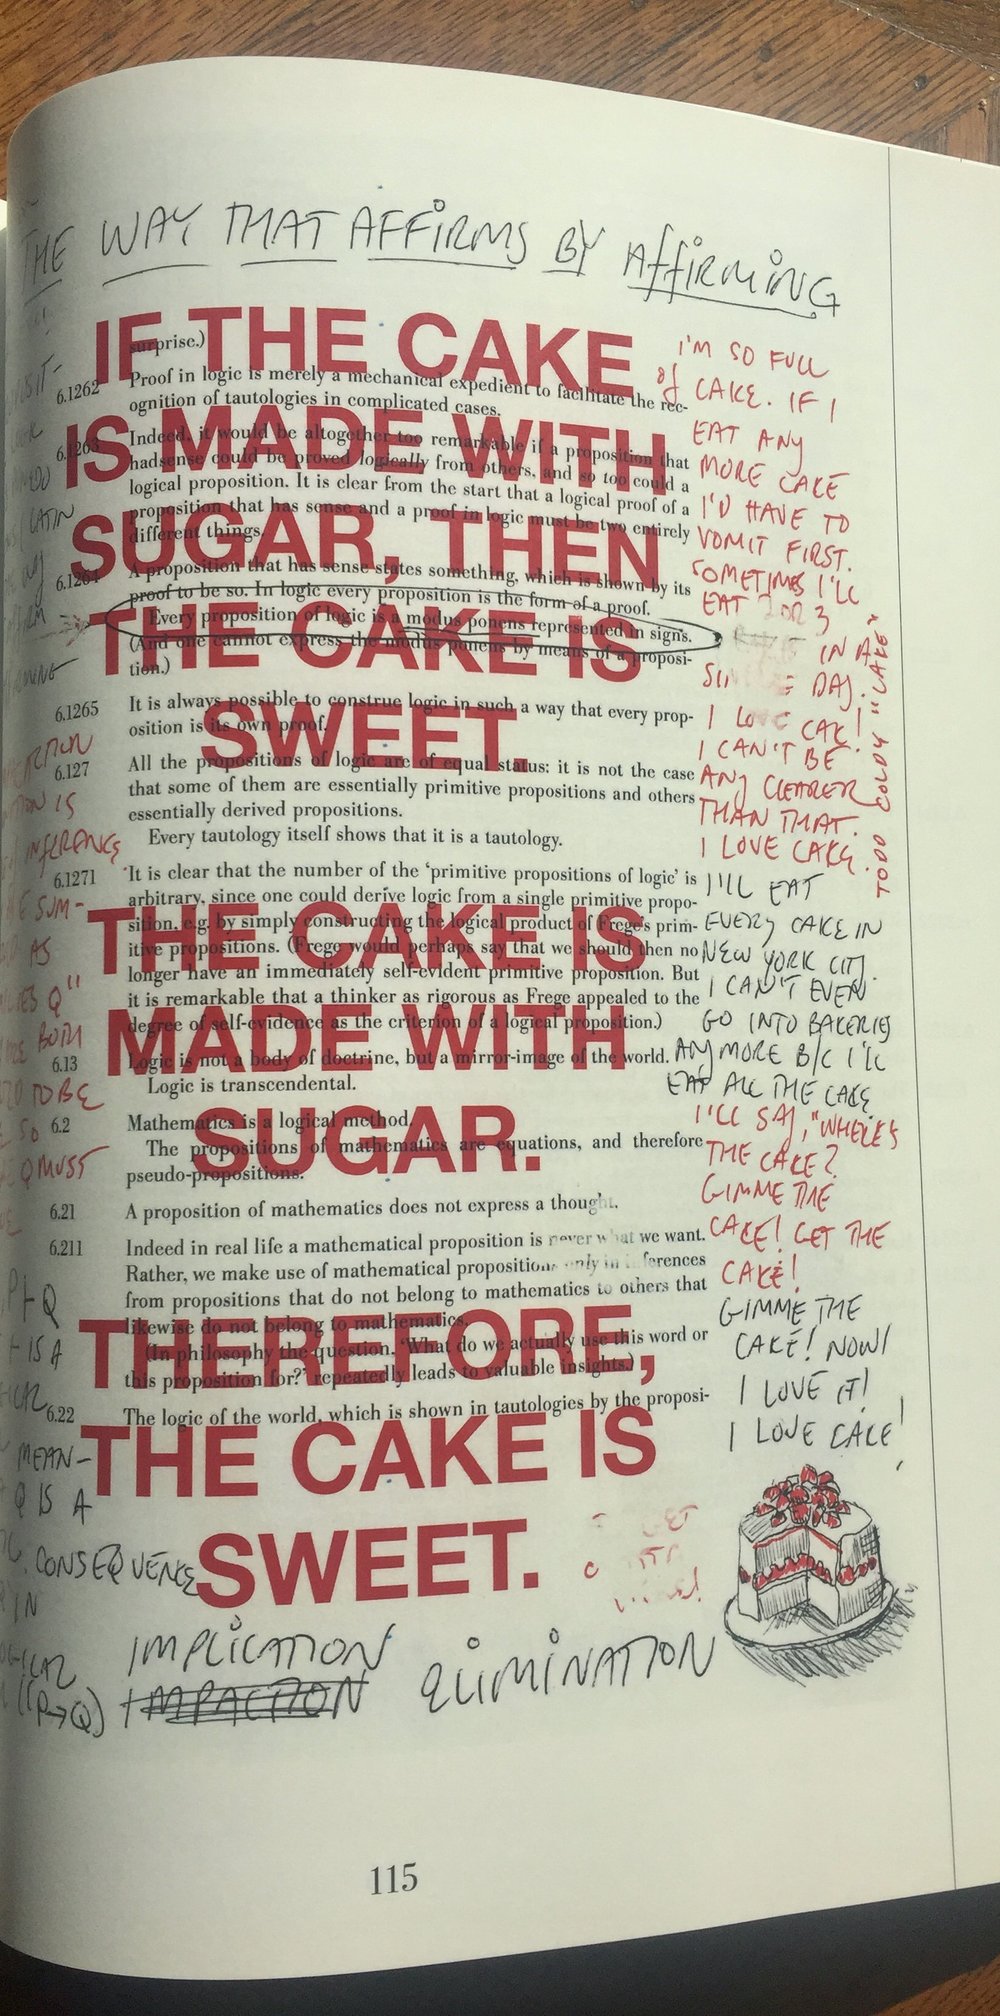 THE WAY THAT AFFIRMS BY AFFIRMING
IF THE CAKE
IS MADE WITH
SUGAR, THEN
THE CAKE IS
SWEET.
THE CAKE IS
MADE WITH
SUGAR.
THEREFORE,
THE CAKE IS
SWEET.
surprise.)
6.1262 Proof in logic is merely a mechanical expedient to facilitate the rec-
ognition of tautologies in complicated cases.
6.1263 Indeed, it would be altogether too remarkable if a proposition that
had sense could be proved logically from others, and so too could a
logical proposition. It is clear from the start that a logical proof of a
proposition that has sense and a proof in logic must be two entirely
different things.
6.1264 A proposition that has sense states something, which is shown by its
proof to be so. In logic every proposition is the form of a proof.
Every proposition of logic is a modus ponens represented in signs.
(And one cannot express the modus ponens by means of a proposi-
tion.)
6.1265 It is always possible to construe logic in such a way that every prop-
osition is its own proof.
6.127 All the propositions of logic are of equal status: it is not the case
that some of them are essentially primitive propositions and others
essentially derived propositions.
Every tautology itself shows that it is a tautology.
6.1271 It is clear that the number of the ‘primitive propositions of logic’ is
arbitrary, since one could derive logic from a single primitive propo-
sition, e.g. by simply constructing the logical product of Frege's prim-
itive propositions. (Frege would perhaps say that we should then no
longer have an immediately self-evident primitive proposition. But
it is remarkable that a thinker as rigorous as Frege appealed to the
degree of self-evidence as the criterion of a logical proposition.)
6.13 Logic is not a body of doctrine, but a mirror-image of the world.
Logic is transcendental.
6.2 Mathematics is a logical method.
The propositions of mathematics are equations, and therefore
pseudo-propositions.
6.21 A proposition of mathematics does not express a thought.
6.211 Indeed in real life a mathematical proposition is never what we want.
Rather, we make use of mathematical propositions only in inferences
from propositions that do not belong to mathematics to others that
likewise do not belong to mathematics.
(In philosophy the question, ‘What do we actually use this word or
this proposition for?’ repeatedly leads to valuable insights.)
6.22 The logic of the world, which is shown in tautologies by the proposi-
I'M SO FULL
of CAKE. IF I
EAT ANY
MORE CAKE
I'D HAVE TO
VOMIT FIRST.
SOMETIMES I'LL
EAT 2 OR 3
IN A
SINGLE DAY.
I LOVE CAKE!
I CAN'T BE
ANY CLEARER
THAN THAT.
I LOVE CAKE.
TODD COLDY "CAKE"
I'LL EAT
EVERY CAKE IN
NEW YORK CITY.
I CAN'T EVEN
GO INTO BAKERIES
ANYMORE B/C I'LL
EAT ALL THE CAKE.
I'LL SAY, "WHERE'S
THE CAKE?
GIMME THE
CAKE! GET THE
CAKE!
GIMME THE
CAKE! NOW!
I LOVE IT!
I LOVE CAKE!
LATIN
TION IS
INFERENCE
SUM-
AS
Q"
BOTH
TO BE
SO
Q MUST
P⊢Q
IS A
MEAN-
Q IS A
CONSEQUENCE
IN
(P→Q)
IMPLICATION ELIMINATION
115